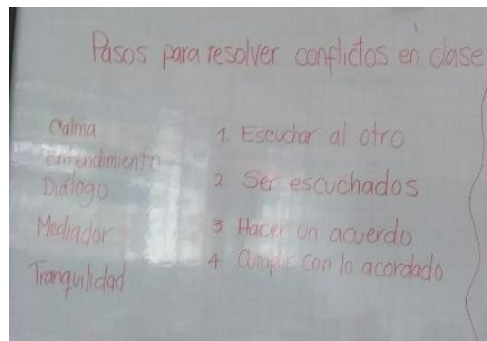 Pasos para resolver conflictos en clase
Calma
entendimiento
Diálogo
Mediador
Tranquilidad
1. Escuchar al otro
2 Ser escuchados
3 Hacer un acuerdo
4. Cumplir con lo acordado